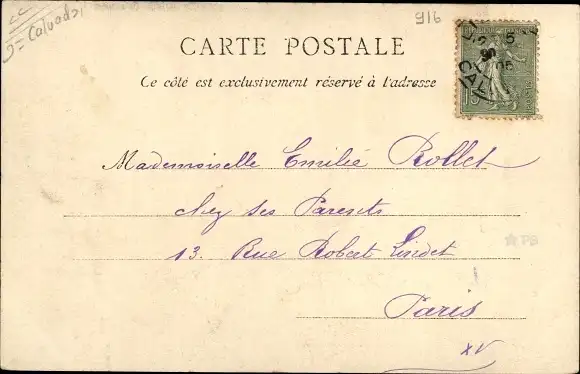 = Calvados
916
CARTE POSTALE
Ce côté est exclusivement réservé à l'adresse
15
CAL
Mademoiselle Emilie Rollet
chez ses Parents
13. Rue Robert Lindet
Paris
XV